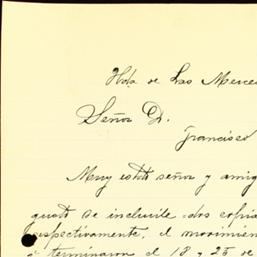 Hda de Las Merce
Señor D.
Francisco
Muy estdo señor y amig
gusto de incluirle dos copia
respectivamente, el movimien
terminaron el 18 y 25 de